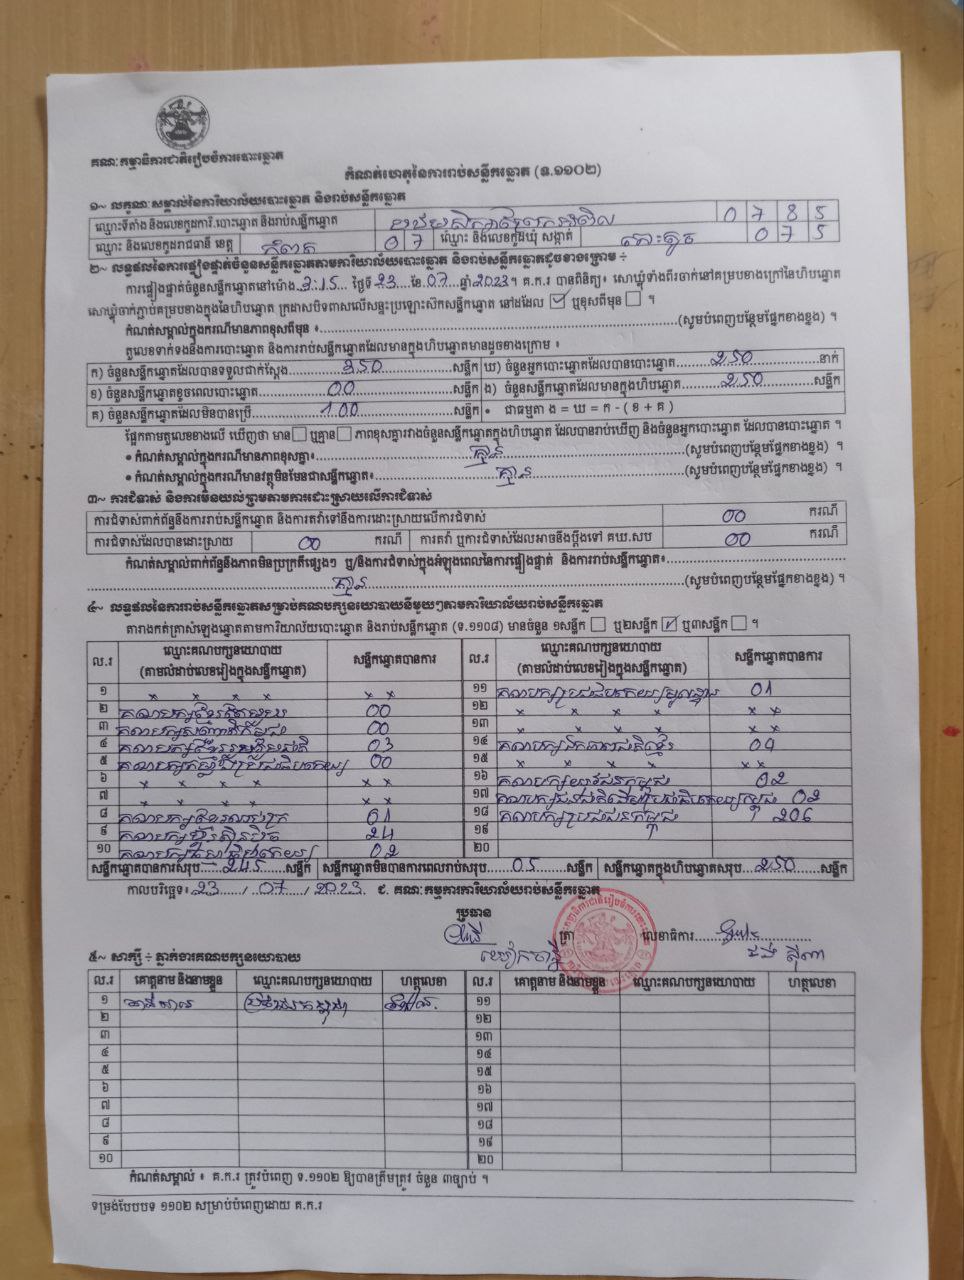 គណៈកម្មាធិការជាតិរៀបចំការបោះឆ្នោត
កំណត់ហេតុនៃការរាប់សន្លឹកឆ្នោត (ទ.១១០២)
១~ លក្ខណៈសម្គាល់នៃការិយាល័យបោះឆ្នោត និងរាប់សន្លឹកឆ្នោត
ឈ្មោះទីតាំង និងលេខកូដការិ.បោះឆ្នោត និងរាប់សន្លឹកឆ្នោត 0 7 8 5
ឈ្មោះ និងលេខកូដរាជធានី ខេត្ត កំពត 0 7 ឈ្មោះ និងលេខកូដឃុំ សង្កាត់ កោះតូច 0 7 5
២~ លទ្ធផលនៃការផ្ទៀងផ្ទាត់ចំនួនសន្លឹកឆ្នោតតាមការិយាល័យបោះឆ្នោត និងរាប់សន្លឹកឆ្នោតដូចខាងក្រោម ៖
ការផ្ទៀងផ្ទាត់ចំនួនសន្លឹកឆ្នោតនៅម៉ោង 3:15 ថ្ងៃទី 23 ខែ 07 ឆ្នាំ 2023 ។ គ.ក.រ បានពិនិត្យ៖ សោឃ្លុំទាំងពីរចាក់នៅគម្របខាងក្រៅនៃហិបឆ្នោត
សោឃ្លុំចាក់ភ្ជាប់គម្របខាងក្នុងនៃហិបឆ្នោត ក្រដាសបិទពាសលើសន្ទះប្រឡោះស៊កសន្លឹកឆ្នោត នៅដដែល ✓ ឬខុសពីមុន ។
កំណត់សម្គាល់ក្នុងករណីមានភាពខុសពីមុន ៖ (សូមបំពេញបន្ថែមផ្នែកខាងខ្នង) ។
តួលេខទាក់ទងនឹងការបោះឆ្នោត និងការរាប់សន្លឹកឆ្នោតដែលមានក្នុងហិបឆ្នោតមានដូចខាងក្រោម ៖
ក) ចំនួនសន្លឹកឆ្នោតដែលបានទទួលជាក់ស្តែង 350 សន្លឹក ឃ) ចំនួនអ្នកបោះឆ្នោតដែលបានបោះឆ្នោត 250 នាក់
ខ) ចំនួនសន្លឹកឆ្នោតខូចពេលបោះឆ្នោត 00 សន្លឹក ង) ចំនួនសន្លឹកឆ្នោតដែលមានក្នុងហិបឆ្នោត 250 សន្លឹក
គ) ចំនួនសន្លឹកឆ្នោតដែលមិនបានប្រើ 100 សន្លឹក • ជាធម្មតា ង = ឃ = ក - ( ខ + គ )
ផ្អែកតាមតួលេខខាងលើ ឃើញថា មាន ឬគ្មាន ភាពខុសគ្នារវាងចំនួនសន្លឹកឆ្នោតក្នុងហិបឆ្នោត ដែលបានរាប់ឃើញ និងចំនួនអ្នកបោះឆ្នោត ដែលបានបោះឆ្នោត ។
• កំណត់សម្គាល់ក្នុងករណីមានភាពខុសគ្នា៖ គ្មាន (សូមបំពេញបន្ថែមផ្នែកខាងខ្នង) ។
• កំណត់សម្គាល់ក្នុងករណីមានវត្ថុមិនមែនជាសន្លឹកឆ្នោត៖ គ្មាន (សូមបំពេញបន្ថែមផ្នែកខាងខ្នង) ។
៣~ ការជំទាស់ និងការមិនយល់ព្រមតាមការដោះស្រាយលើការជំទាស់
ការជំទាស់ពាក់ព័ន្ធនឹងការរាប់សន្លឹកឆ្នោត និងការតវ៉ាទៅនឹងការដោះស្រាយលើការជំទាស់ 00 ករណី
ការជំទាស់ដែលបានដោះស្រាយ 00 ករណី ការតវ៉ា ឬការជំទាស់ដែលអាចនឹងប្តឹងទៅ គឃ.សប 00 ករណី
កំណត់សម្គាល់ពាក់ព័ន្ធនឹងភាពមិនប្រក្រតីផ្សេងៗ ឬ/និងការជំទាស់ក្នុងអំឡុងពេលនៃការផ្ទៀងផ្ទាត់ និងការរាប់សន្លឹកឆ្នោត៖
គ្មាន (សូមបំពេញបន្ថែមផ្នែកខាងខ្នង) ។
៤~ លទ្ធផលនៃការរាប់សន្លឹកឆ្នោតសម្រាប់គណបក្សនយោបាយនីមួយៗតាមការិយាល័យរាប់សន្លឹកឆ្នោត
តារាងកត់ត្រាសំឡេងឆ្នោតតាមការិយាល័យបោះឆ្នោត និងរាប់សន្លឹកឆ្នោត (ទ.១១០៨) មានចំនួន ១សន្លឹក ឬ២សន្លឹក ✓ ឬ៣សន្លឹក ។
ល.រ ឈ្មោះគណបក្សនយោបាយ (តាមលំដាប់លេខរៀងក្នុងសន្លឹកឆ្នោត) សន្លឹកឆ្នោតបានការ ល.រ ឈ្មោះគណបក្សនយោបាយ (តាមលំដាប់លេខរៀងក្នុងសន្លឹកឆ្នោត) សន្លឹកឆ្នោតបានការ
១ x x x x x x ១១ គណបក្សប្រជាធិបតេយ្យមូលដ្ឋាន 01
២ គណបក្សខ្មែរតែមួយ 00 ១២ x x x x x x
៣ គណបក្ស 00 ១៣ x x x x x x
៤ គណបក្សខ្មែររួបរួមជាតិ 03 ១៤ គណបក្ស 04
៥ គណបក្សកម្លាំងប្រជាធិបតេយ្យ 00 ១៥ x x x x x x
៦ x x x x x x ១៦ គណបក្សយុវជនកម្ពុជា 02
៧ x x x x x x ១៧ គណបក្សជនជាតិដើមប្រជាធិបតេយ្យកម្ពុជា 02
៨ គណបក្ស 01 ១៨ គណបក្សប្រជាជនកម្ពុជា 206
៩ គណបក្សហ៊្វុនស៊ិនប៉ិច 24 ១៩
១០ គណបក្ស 02 ២០
សន្លឹកឆ្នោតបានការសរុប 245 សន្លឹក សន្លឹកឆ្នោតមិនបានការពេលរាប់សរុប 05 សន្លឹក សន្លឹកឆ្នោតក្នុងហិបឆ្នោតសរុប 250 សន្លឹក
កាលបរិច្ឆេទ៖ 23 / 07 / 2023 ជ. គណៈកម្មការការិយាល័យរាប់សន្លឹកឆ្នោត
ប្រធាន
ត្រា លេខាធិការ
៥~ សាក្សី ÷ ភ្នាក់ងារគណបក្សនយោបាយ
ល.រ គោត្តនាម និងនាមខ្លួន ឈ្មោះគណបក្សនយោបាយ ហត្ថលេខា ល.រ គោត្តនាម និងនាមខ្លួន ឈ្មោះគណបក្សនយោបាយ ហត្ថលេខា
១ ប្រជាជនកម្ពុជា ១១
២ ១២
៣ ១៣
៤ ១៤
៥ ១៥
៦ ១៦
៧ ១៧
៨ ១៨
៩ ១៩
១០ ២០
កំណត់សម្គាល់ ៖ គ.ក.រ ត្រូវបំពេញ ទ.១១០២ ឱ្យបានត្រឹមត្រូវ ចំនួន ៣ច្បាប់ ។
ទម្រង់បែបបទ ១១០២ សម្រាប់បំពេញដោយ គ.ក.រ